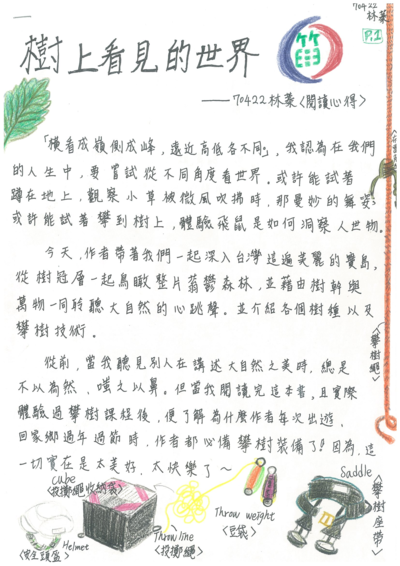 70422
林蓁
P.1
樹上看見的世界
——70422林蓁〈閱讀心得〉
「橫看成嶺側成峰，遠近高低各不同」，我認為在我們
的人生中，要嘗試從不同角度看世界。或許能試著
蹲在地上，觀察小草被微風吹拂時，那曼妙的舞姿；
或許能試著攀到樹上，體驗飛鼠是如何洞察人世物。
今天，作者帶著我們一起深入台灣這遍美麗的寶島。
從樹冠層一起鳥瞰整片蓊鬱森林，並藉由樹幹與
萬物一同聆聽大自然的心跳聲。並介紹各個樹種以及
攀樹技術。
從前，當我聽見別人在講述大自然之美時，總是
不以為然、嗤之以鼻。但當我閱讀完這本書，且實際
體驗過攀樹課程後，便了解為什麼作者每次出遊、
回家鄉過年過節時，作者都必備攀樹裝備了！因為，這
一切實在是太美好、太快樂了～
〈攀樹繩〉
cube
〈投擲繩收納袋〉
Helmet
〈安全頭盔〉
Throw line
〈投擲繩〉
Throw weight
〈豆袋〉
Saddle
〈攀樹座帶〉